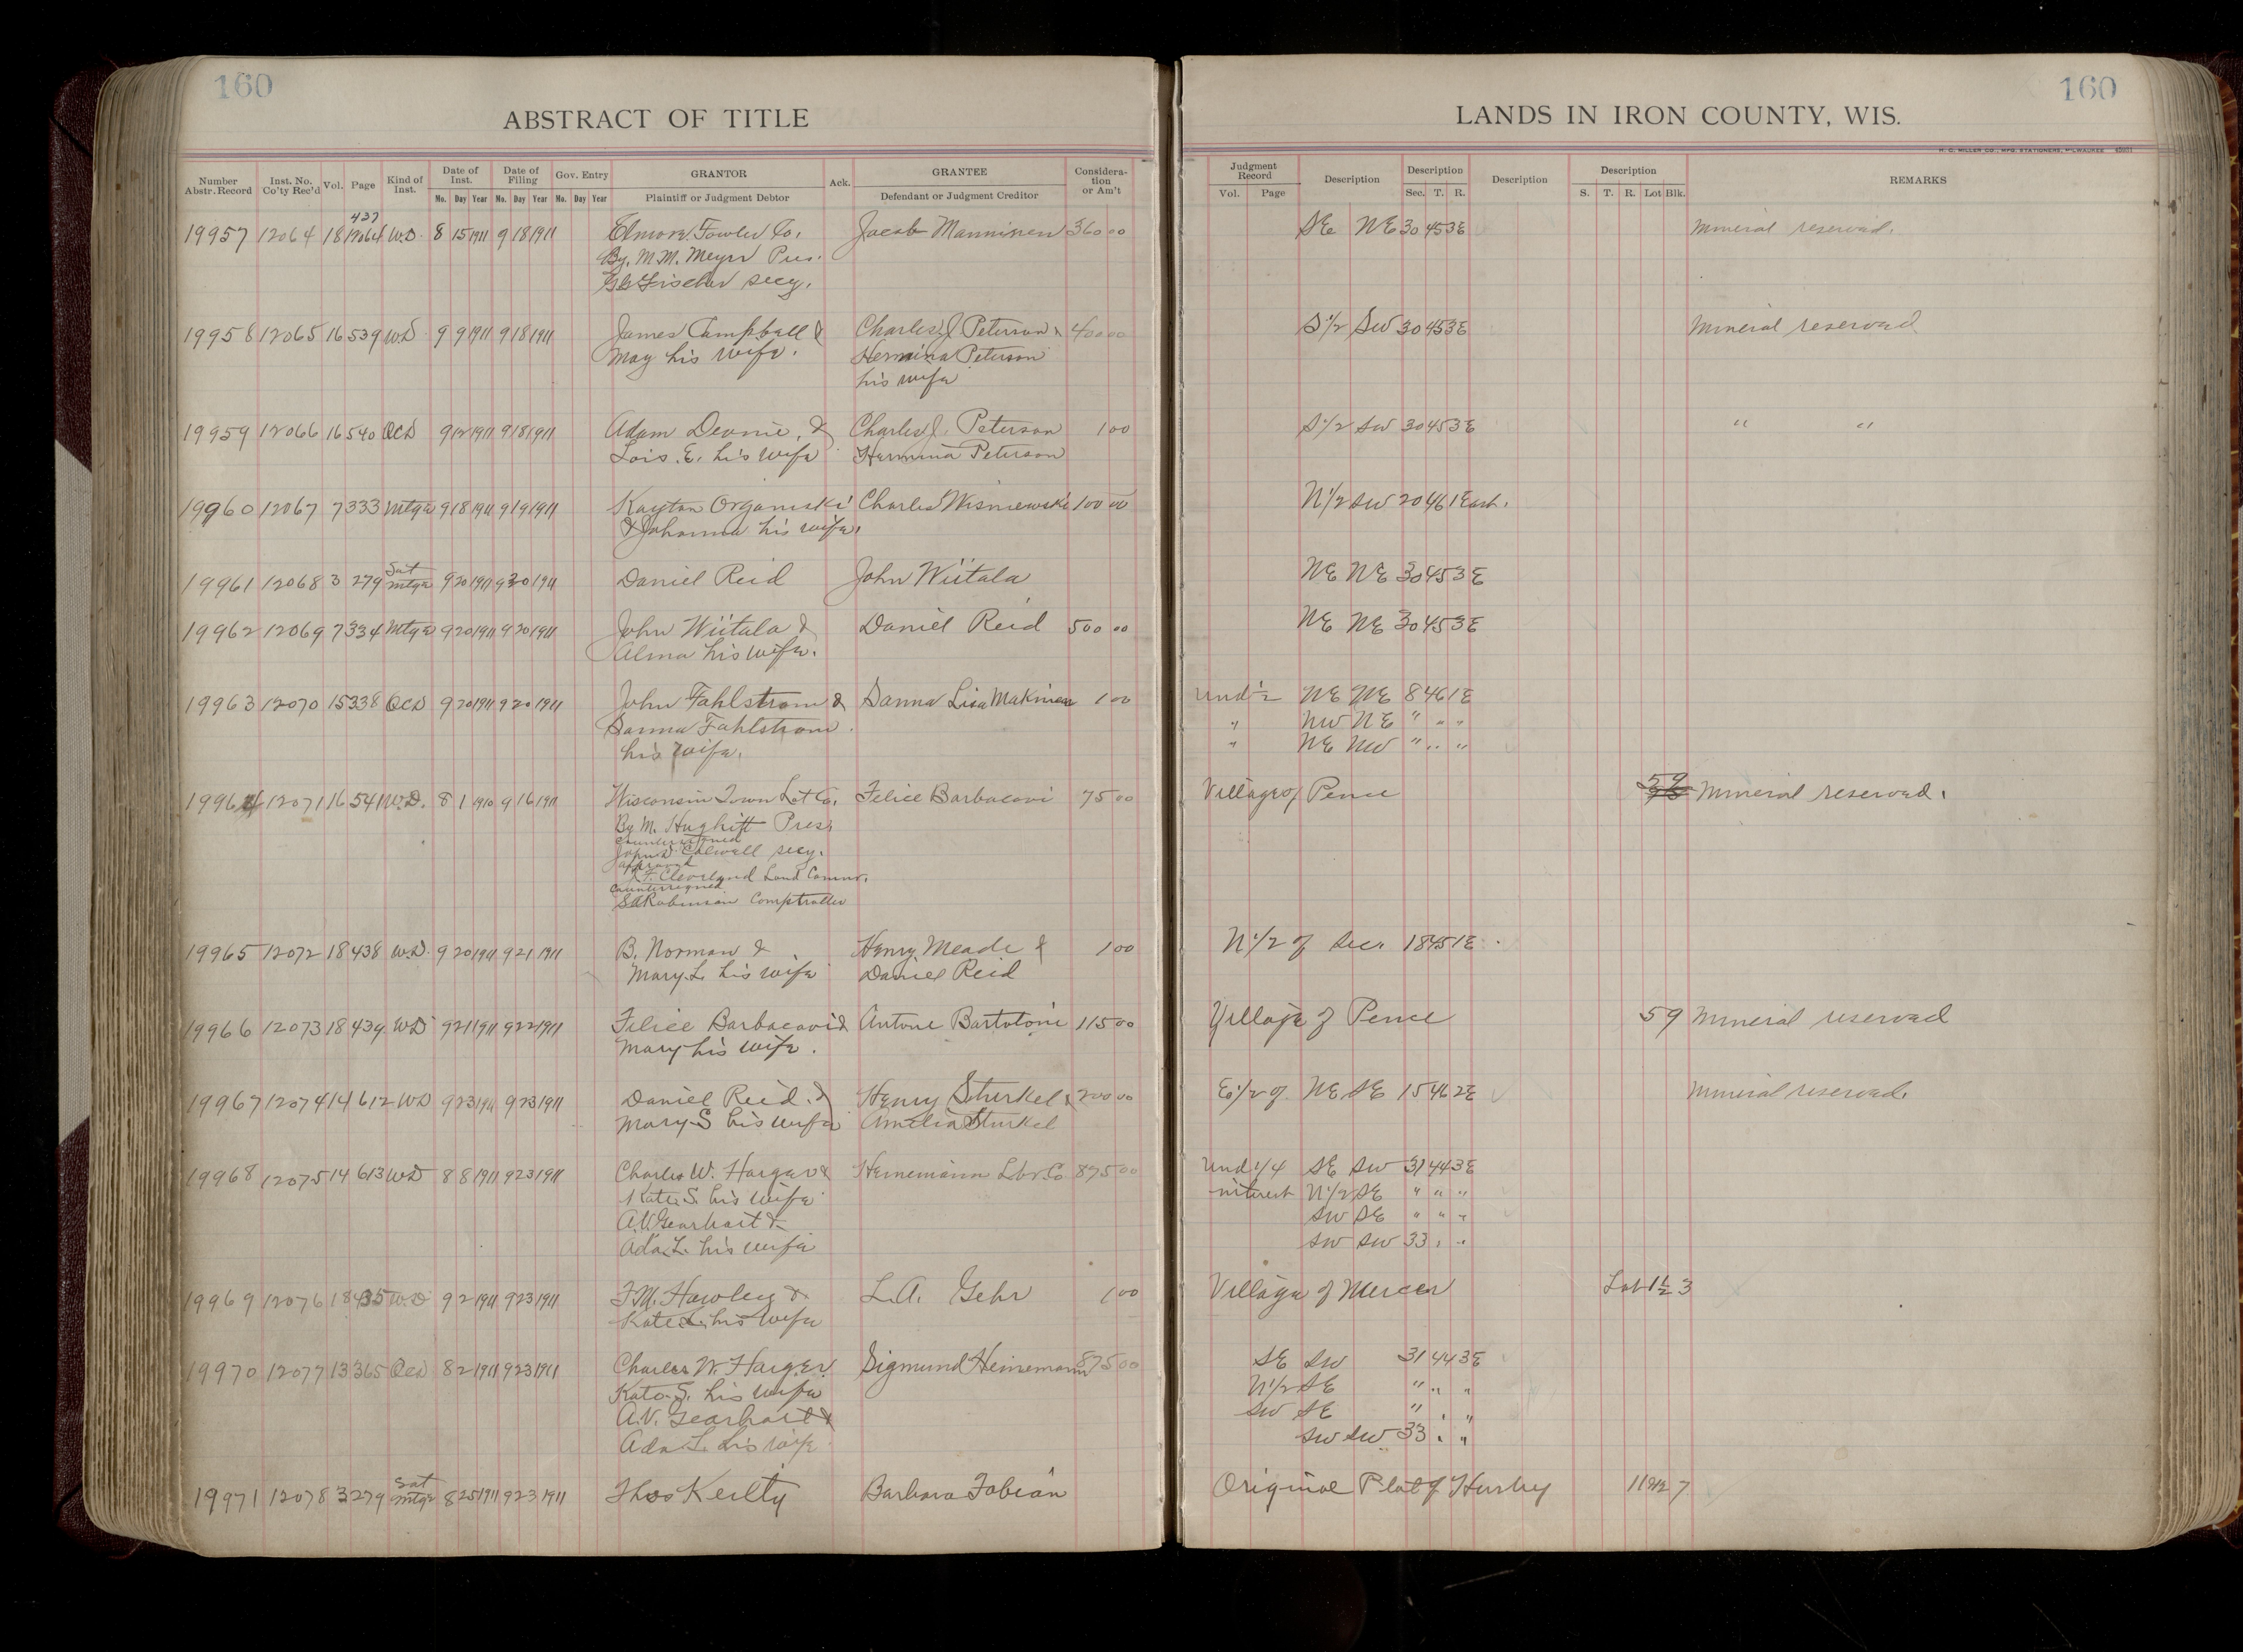 160
ABSTRACT OF TITLE
Number Abstr. Record Inst. No. Co'ty Rec'd Vol. Page Kind of Inst. Date of Inst. Date of Filing Gov. Entry GRANTOR Ack. GRANTEE Considera-tion or Am't
Mo. Day Year Mo. Day Year Mo. Day Year Plaintiff or Judgment Debtor Defendant or Judgment Creditor
437
19957 12064 18 W.D. 8 15 1911 9 18 1911 Elmore Fowler Co. Jacob Manninen 360 00
By. M.M. Meyer Pres.
Fischer secy.
19958 12065 16 539 W.D. 9 9 1911 9 18 1911 James Campbell & Charles J Peterson & 400 00
May his wife. Hermina Peterson
his wife
19959 12066 16 540 QCD 9 12 1911 9 18 1911 Adam Deonie, & Charles J. Peterson 1 00
Lois. E. his wife Hermina Peterson
19960 12067 7 333 Mtge 9 18 1911 9 19 1911 Kayton Organiski Charles Wisniewski 100 00
& Johanna his wife.
Sat
19961 12068 3 279 Mtge 9 20 1911 9 20 1911 Daniel Reid John Wiitala
19962 12069 7 334 Mtge 9 20 1911 9 20 1911 John Wiitala & Daniel Reid 500 00
Alma his wife.
19963 12070 15 338 QCD 9 20 1911 9 20 1911 John Fahlstrom & Sanna Lisa Makinen 1 00
Sanna Fahlstrom
his wife.
19964 12071 16 541 W.D. 8 1 1910 9 16 1911 Wisconsin Town Lot Co. Felice Barbacovi 75 00
By M. Hughitt Pres.
countersigned
John D. Calwell secy.
approved
J.F. Cleveland Land Commr.
countersigned
S.A Robinson Comptroller
19965 12072 18 438 W.D. 9 20 1911 9 21 1911 B. Norman & Henry Meade & 1 00
Mary L. his wife Daniel Reid
19966 12073 18 439 W.D 9 21 1911 9 22 1911 Felice Barbacovi & Antone Bartoloni 115 00
Mary his wife.
19967 12074 14 612 W.D 9 23 1911 9 23 1911 Daniel Reid. & Henry Sturkel & 200 00
Mary S his wife Amelia Sturkel
19968 12075 14 613 W.D 8 8 1911 9 23 1911 Charles W. Harger & Heinemann Lbr Co 875 00
Kate S. his wife
A.V. Gearhart &
Ada L. his wife
19969 12076 18 435 W.D 9 2 1911 9 23 1911 F.M. Hawley & L.A. Gehr 1 00
Kate L. his wife
19970 12077 13 365 QCD 8 2 1911 9 23 1911 Charles W. Harger Sigmund Heinemann 875 00
Kate S. his wife
A.V. Gearhart &
Ada L. his wife
Sat
19971 12078 3 279 Mtge 8 25 1911 9 23 1911 Thos Keilty Barbara Fabian
160
LANDS IN IRON COUNTY, WIS.
H. C. MILLER CO., MFG. STATIONERS, MILWAUKEE
Judgment Record Description Description Description Description REMARKS
Vol. Page Sec. T. R. S. T. R. Lot Blk.
SE NE 30 45 3E Mineral reserved.
S 1/2 SW 30 45 3E Mineral reserved
S 1/2 SW 30 45 3E " "
N 1/2 SW 20 46 1 East.
NE NE 30 45 3E
NE NE 30 45 3E
Und 1/2 NE NE 8 46 1E
" NW NE " " "
" NE NW " " "
Village of Pence 59 Mineral reserved.
N 1/2 of Sec. 18 45 1E
Village of Pence 59 Mineral reserved
E 1/2 of NE SE 15 46 2E Mineral reserved.
Und 1/4 SE SW 31 44 3E
interest N 1/2 SE " " "
SW SE " " "
SW SW 33 " "
Village of Mercer Lot 1 & 2 3
SE SW 31 44 3E
N 1/2 SE " " "
SW SE " " "
SW SW 33 " "
Original Plat of Hurley 11 & 12 7